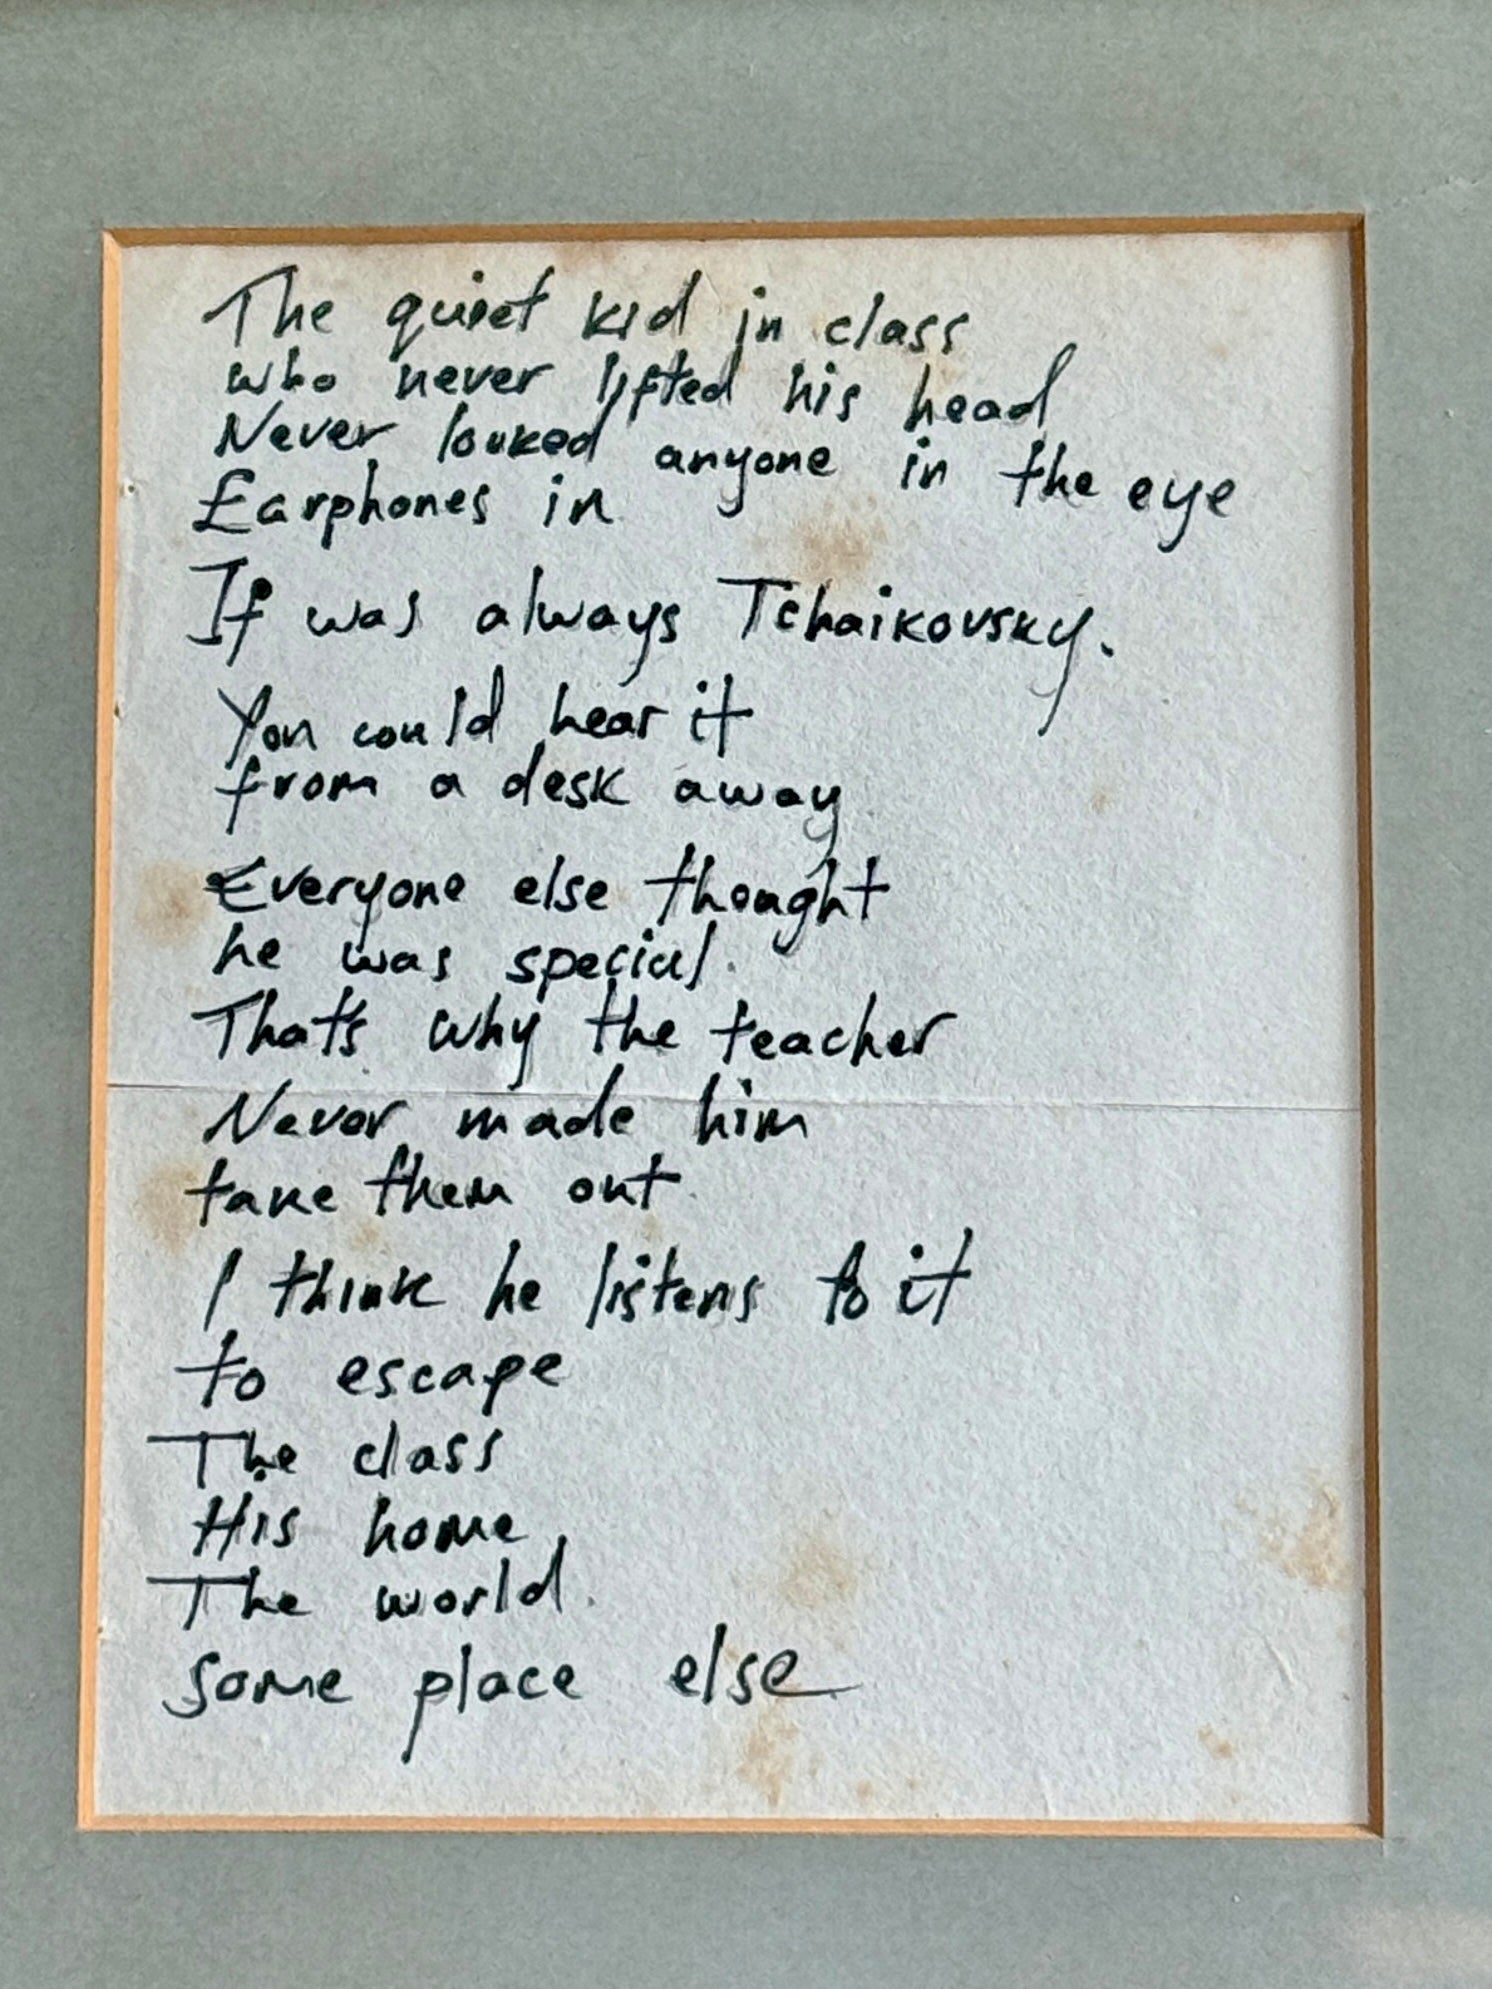 The quiet kid in class
who never lifted his head
Never looked anyone in the eye
Earphones in
It was always Tchaikovsky.
You could hear it
from a desk away
Everyone else thought
he was special.
That's why the teacher
Never made him
take them out.
I think he listens to it
to escape
The class
His home
The world.
Some place else